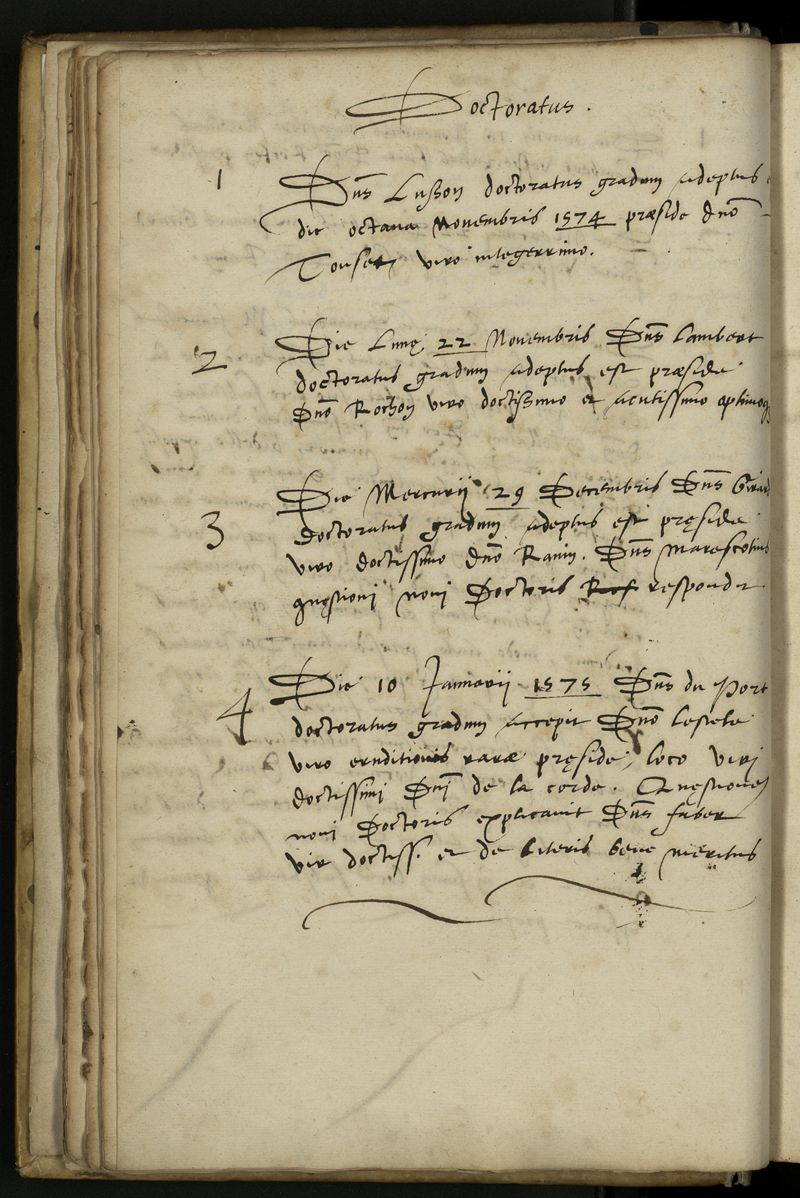 Doctoratus.
1 Dns Lusson doctoratus gradum adeptus
die octava Novembris 1574 præside dno
viro integerrimo.
2 Die Lunę 22 Novembris Dns Lambert
doctoratus gradum adeptus est præside
Dno Rochon viro doctissimo et acutissimo optimoq
3 Die Mercurii 29 Decembris Dns Girard
doctoratus gradum adeptus est pręside
viro doctissimo dno Ranin. Dns Marescotius
quęstioni novi Doctoris respondit
4 Die 10 Januarii 1575 Dns du Port
doctoratus gradum accepit Dno
viro eruditionis raræ pręside, loco viri
doctissimi Dni de la corde. Quęstiones
novi Doctoris explicavit Dns faber
vir doctiss. et de literis bene meritus